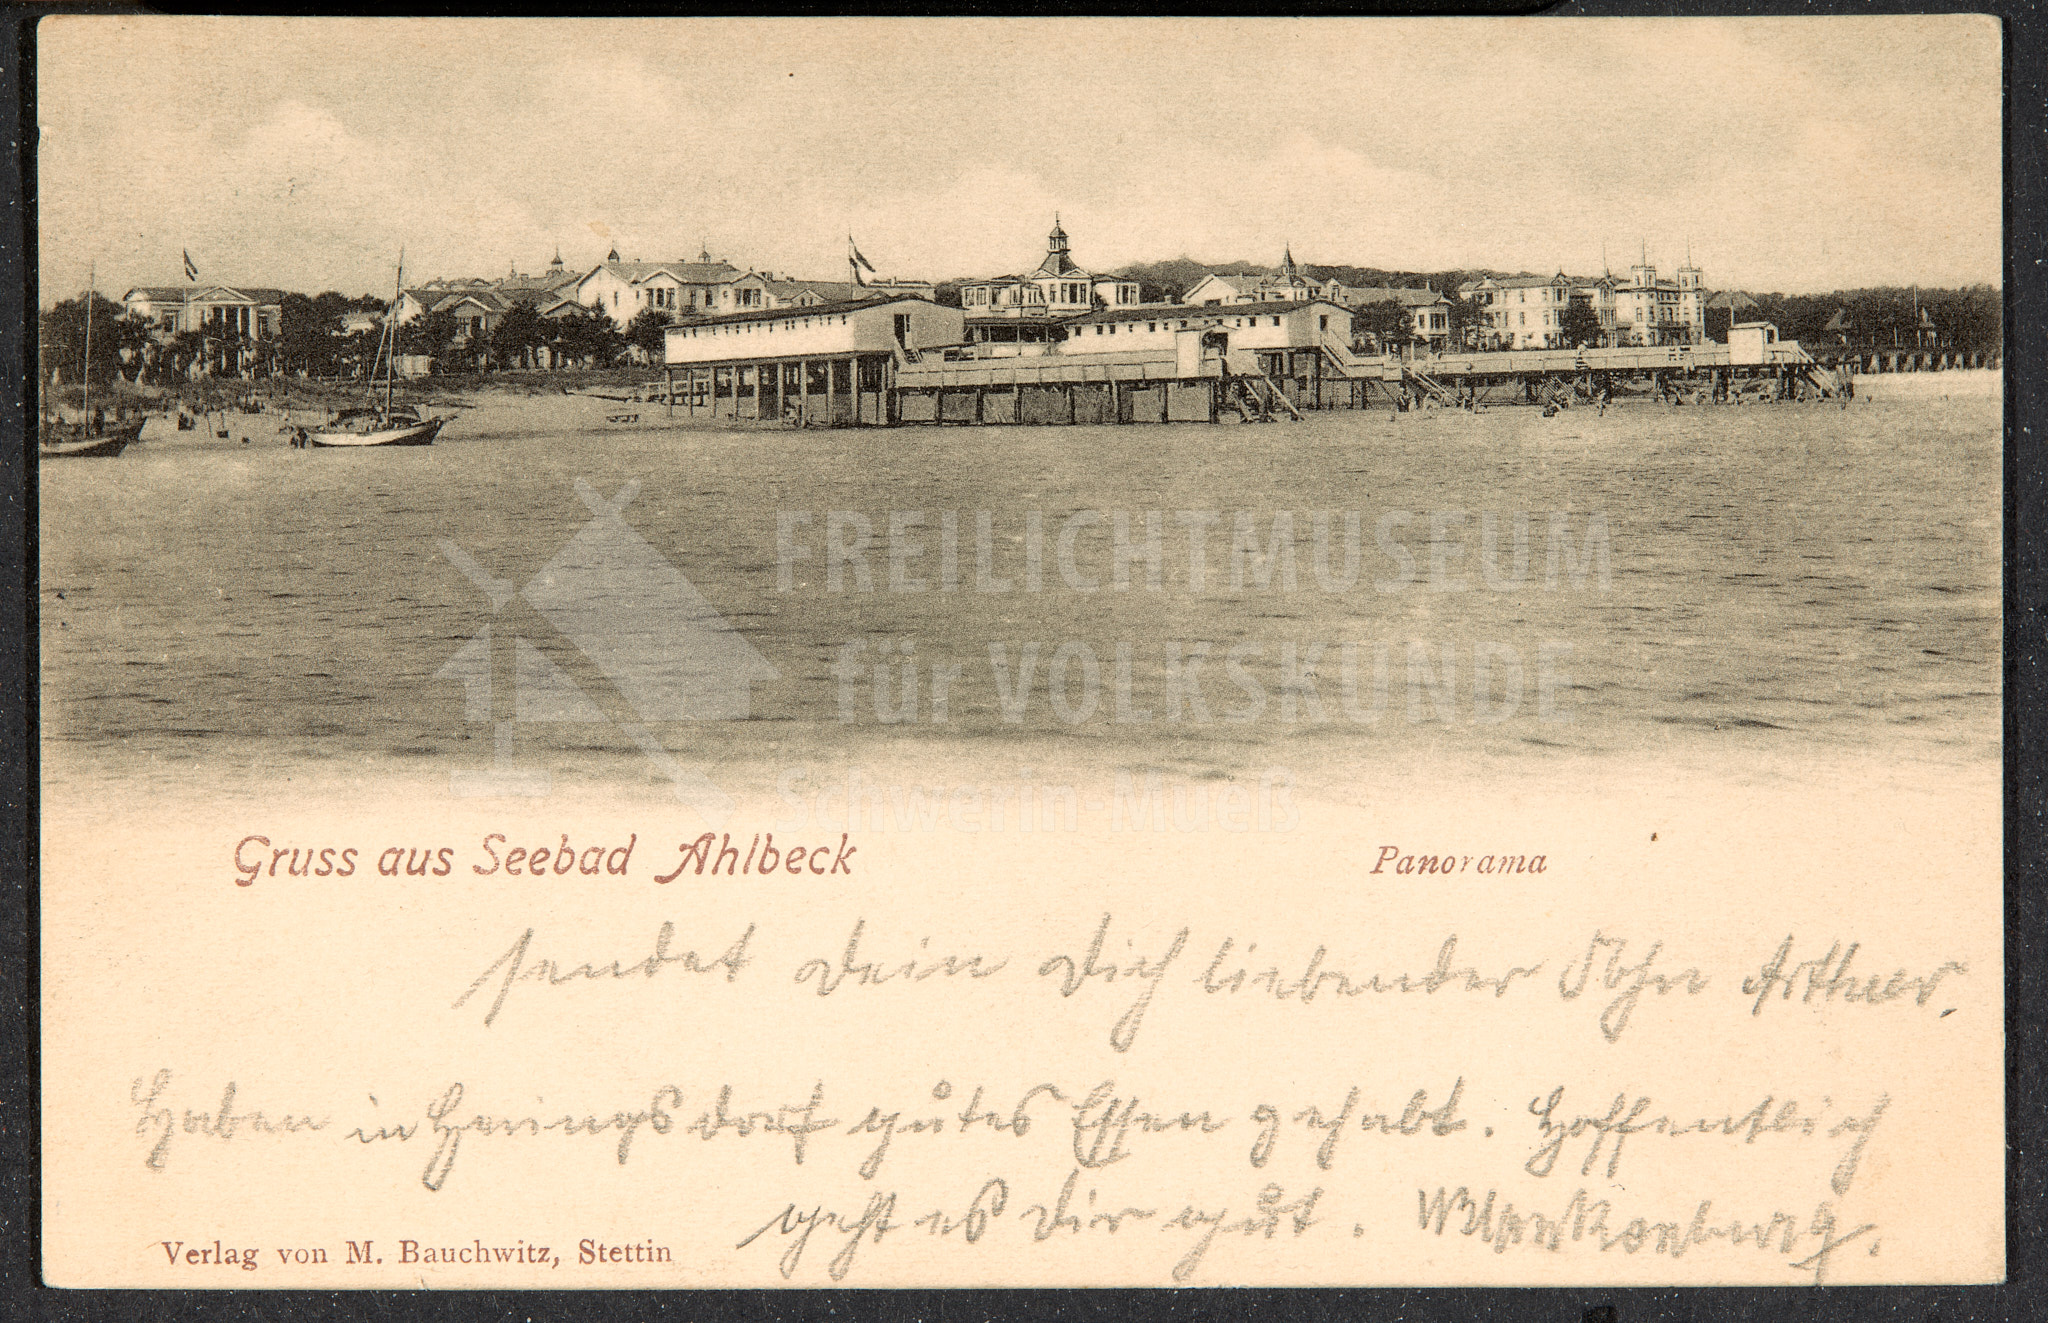 FREILICHTMUSEUM
für VOLKSKUNDE
Schwerin-Mueß
Gruss aus Seebad Ahlbeck
Panorama
sendet Dein Dich liebender Sohn Arthur.
Haben in Heringsdorf gutes Essen gehabt. Hoffentlich
geht es Dir gut.
Verlag von M. Bauchwitz, Stettin